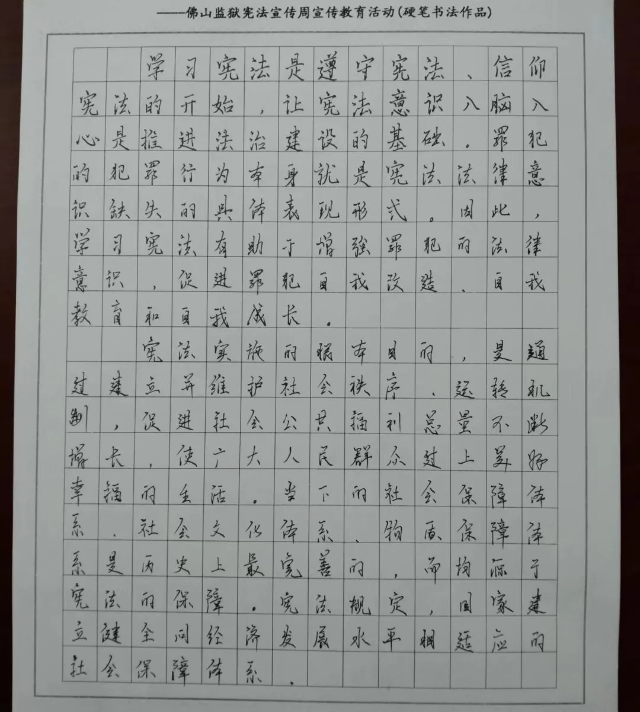 ——佛山监狱宪法宣传周宣传教育活动(硬笔书法作品)
学习宪法是遵守宪法、信仰
宪法的开始,让宪法意识入脑入
心是推进法治建设的基础。罪犯
的犯罪行为本身就是宪法法律意
识缺失的具体表现形式。因此,
学习宪法有助于增强罪犯的法律
意识,促进罪犯自我改造、自我
教育和自我成长。
宪法实施的根本目的,是通
过建立并维护社会秩序、运转机
制,促进社会公共福利总量不断
增长,使广大人民群众过上美好
幸福的生活。当下的社会保障体
系、社会文化体系、物质保障体
系是历史上最完善的,而均源于
宪法的保障。宪法规定,国家建
立健全同经济发展水平相适应的
社会保障体系。